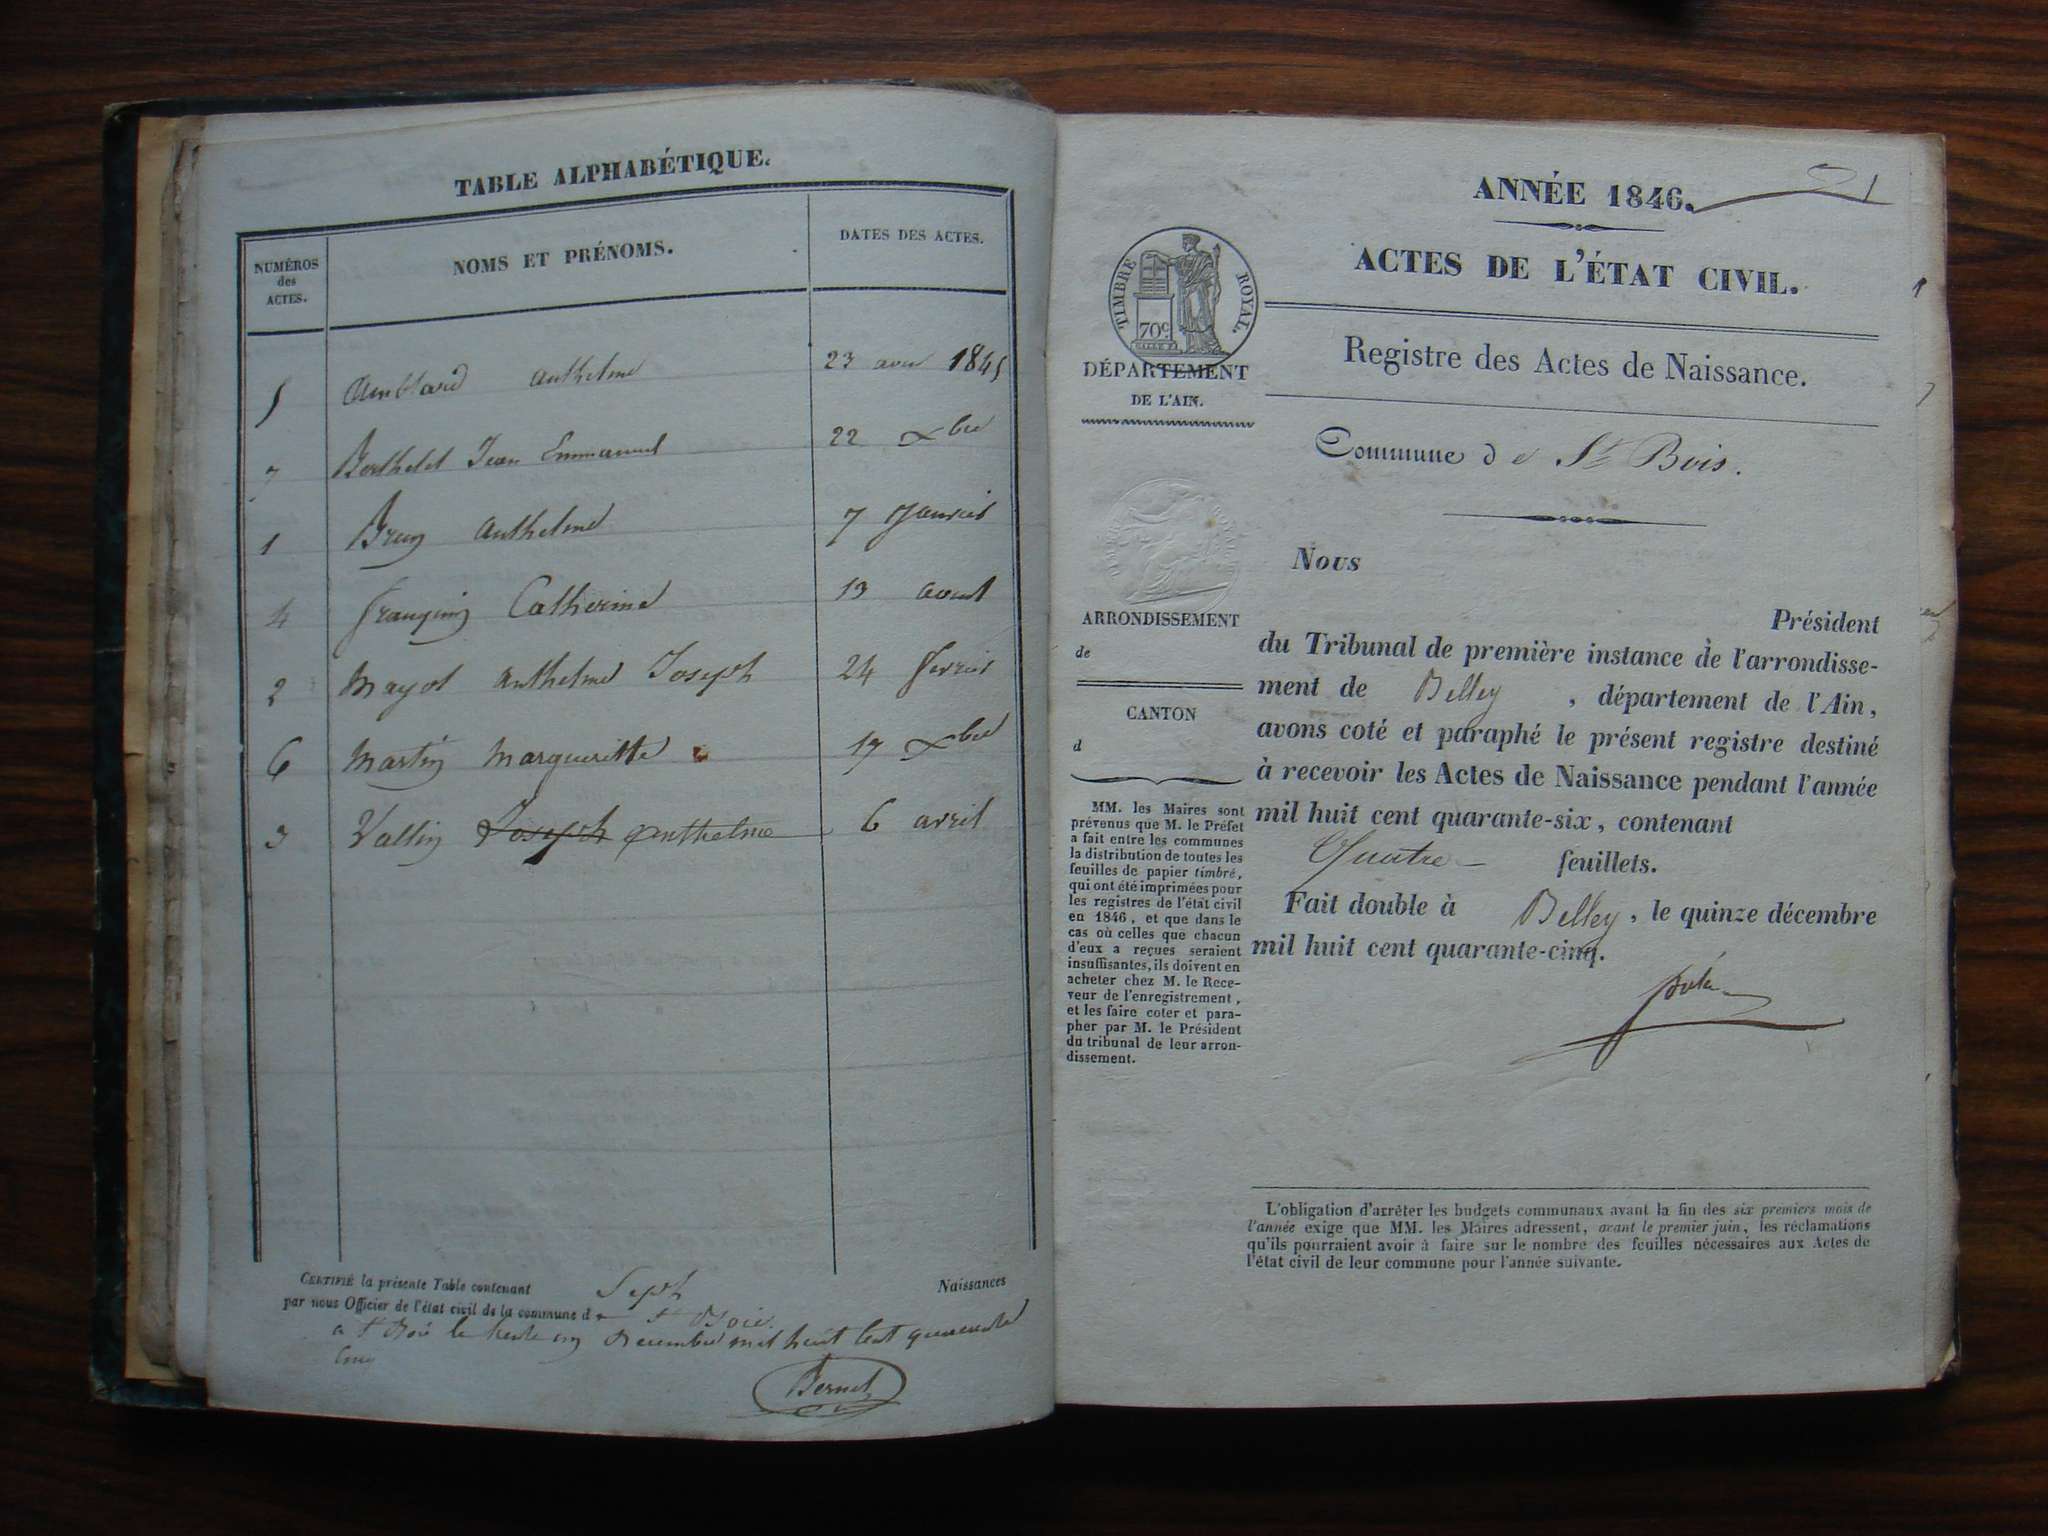 TABLE ALPHABÉTIQUE.
NUMÉROS
des
ACTES.
NOMS ET PRÉNOMS.
DATES DES ACTES.
5 Amblard anthelme 23 1845
7 Berthelet Jean Emmanuel 22 Xbre
1 Brun anthelme 7 Janvier
4 Catherine 13 aout
2 Mayot anthelme Joseph 24 fevrier
6 Martin Marguerite 17 Xbre
3 Vallin Joseph anthelme 6 avril
CERTIFIÉ la présente Table contenant Sept Naissances
par nous Officier de l'état civil de la commune de St Bois.
a St Bois le trente un Decembre mil huit cent quarante
cinq
Bernet
ANNÉE 1846. 1
ACTES DE L'ÉTAT CIVIL.
TIMBRE ROYAL.
70c
DÉPARTEMENT
DE L'AIN.
Registre des Actes de Naissance.
Commune de St Bois.
ARRONDISSEMENT
de
CANTON
d
MM. les Maires sont
prévenus que M. le Préfet
a fait entre les communes
la distribution de toutes les
feuilles de papier timbré,
qui ont été imprimées pour
les registres de l'état civil
en 1846, et que dans le
cas où celles que chacun
d'eux a reçues seraient
insuffisantes, ils doivent en
acheter chez M. le Rece-
veur de l'enregistrement,
et les faire coter et para-
pher par M. le Président
du tribunal de leur arron-
dissement.
Nous
Président
du Tribunal de première instance de l'arrondisse-
ment de Belley, département de l'Ain,
avons coté et paraphé le présent registre destiné
à recevoir les Actes de Naissance pendant l'année
mil huit cent quarante-six, contenant
Quatre feuillets.
Fait double à Belley, le quinze décembre
mil huit cent quarante-cinq.
L'obligation d'arrêter les budgets communaux avant la fin des six premiers mois de
l'année exige que MM. les Maires adressent, avant le premier juin, les réclamations
qu'ils pourraient avoir à faire sur le nombre des feuilles nécessaires aux Actes de
l'état civil de leur commune pour l'année suivante.